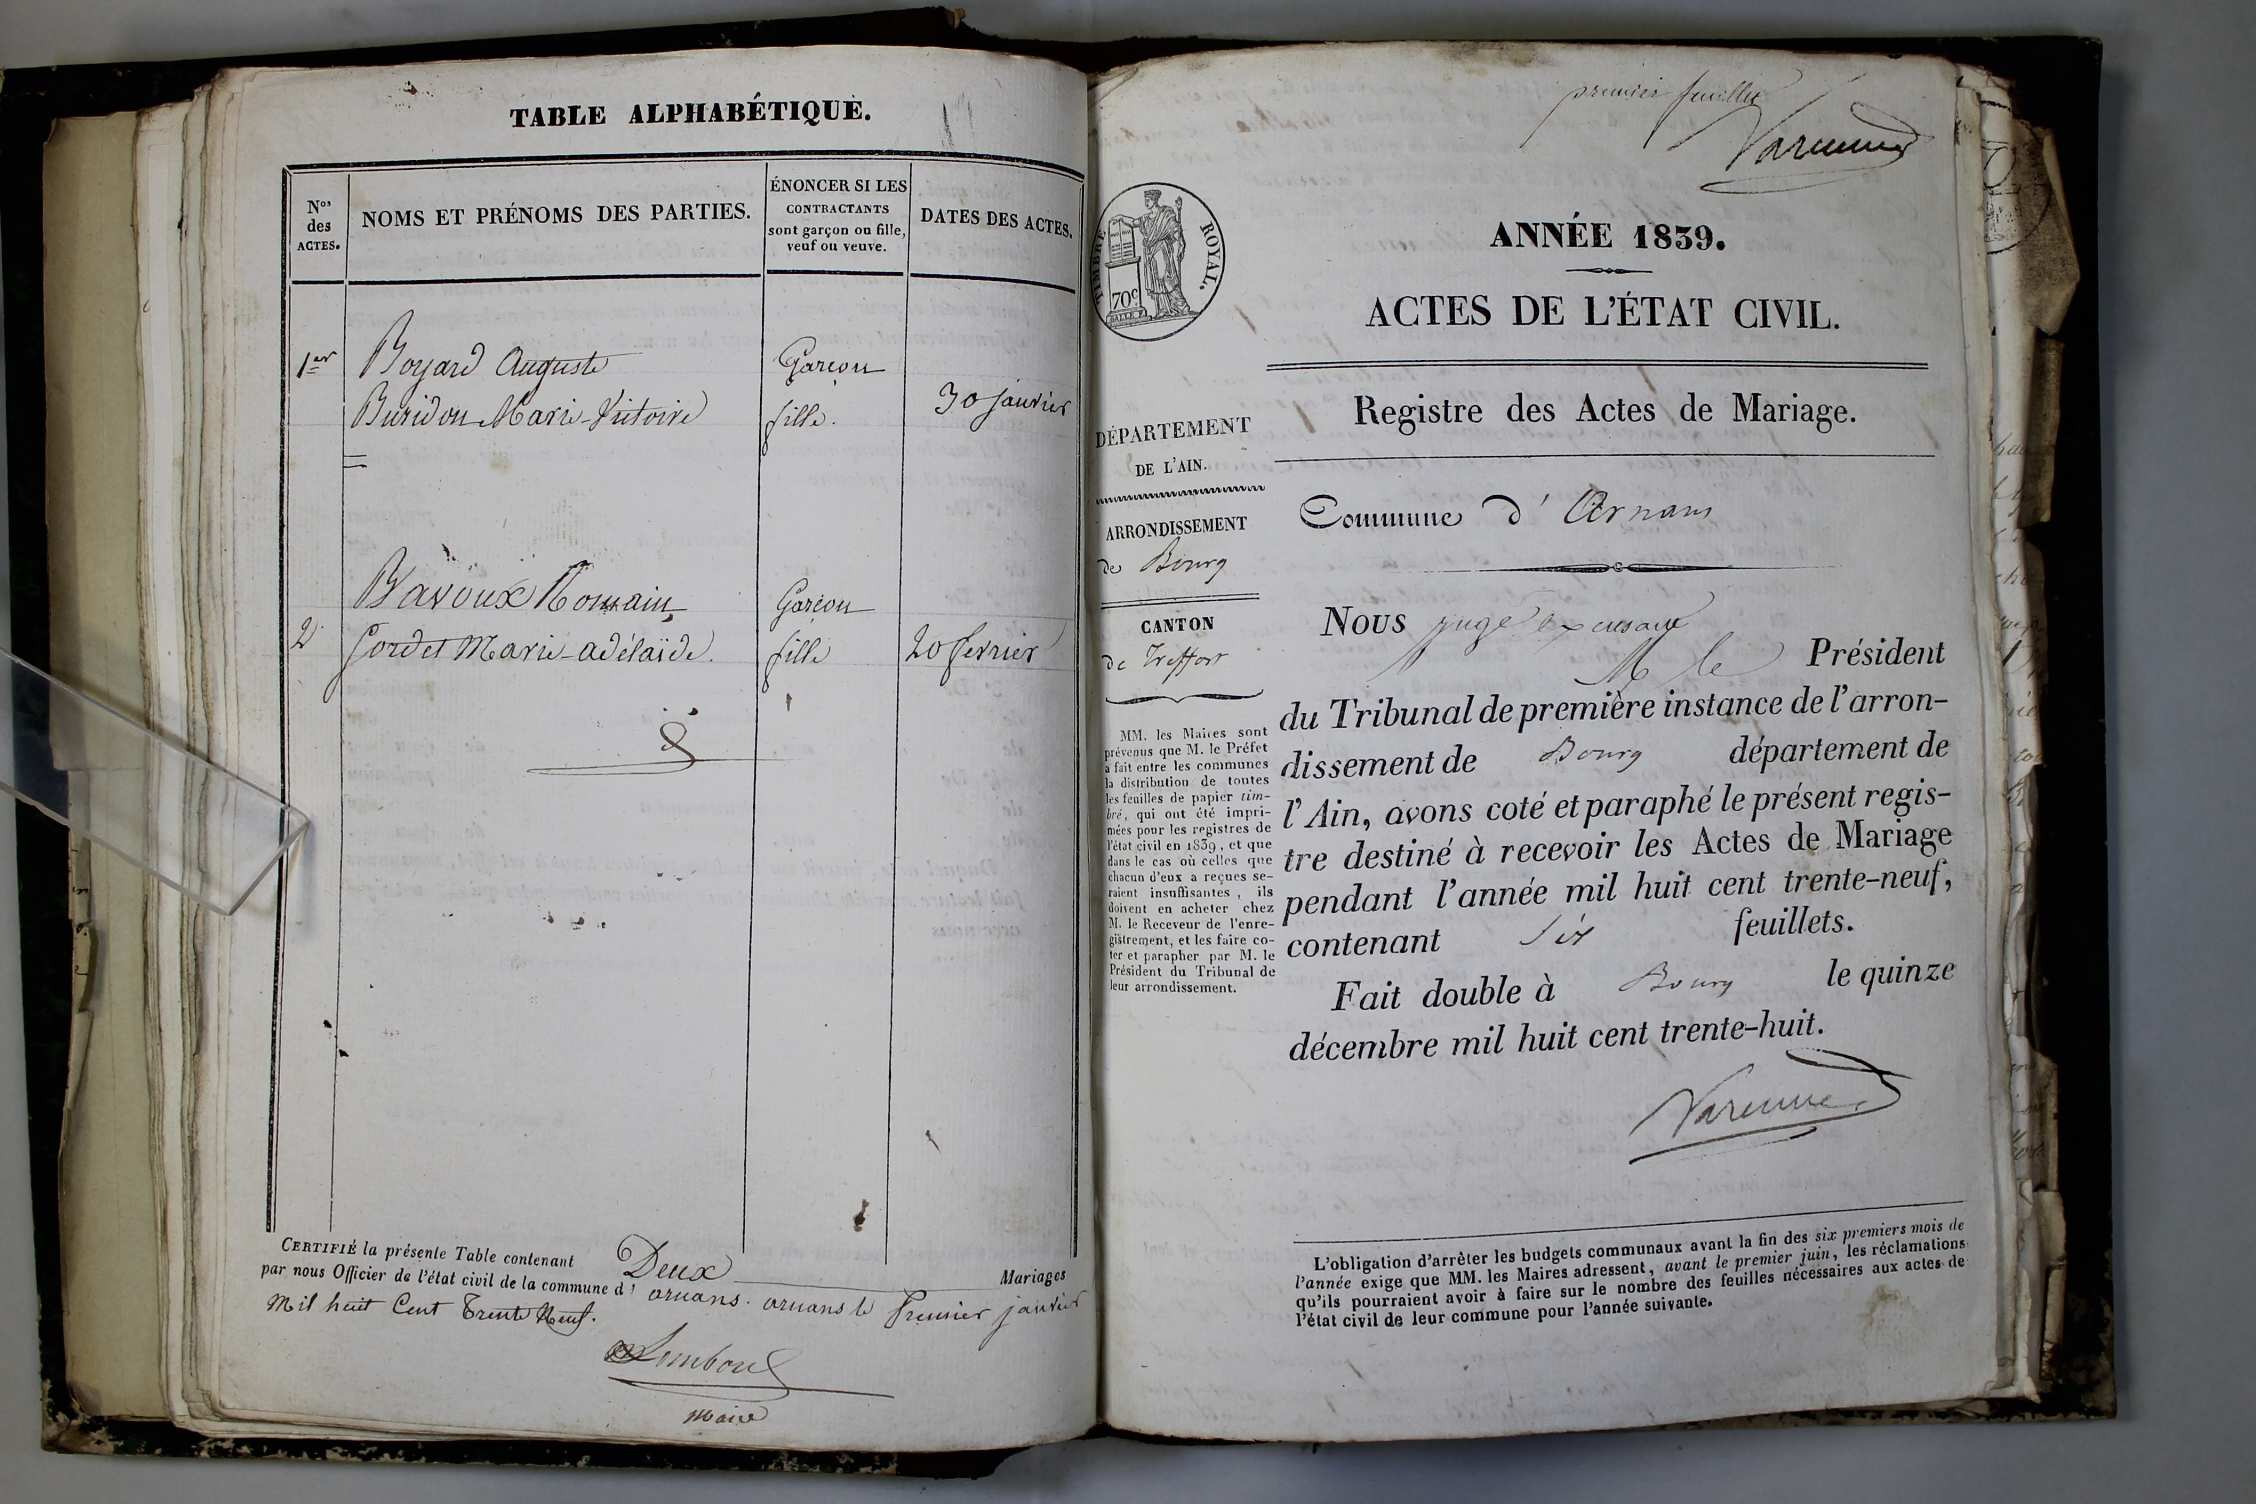 TABLE ALPHABÉTIQUE.
Nos
des
ACTES.
NOMS ET PRÉNOMS DES PARTIES.
ÉNONCER SI LES
CONTRACTANTS
sont garçon ou fille,
veuf ou veuve.
DATES DES ACTES.
1er Boyard Auguste Garçon
Buridon Marie-Victoire fille. 30 janvier
Bavoux Romain Garçon
2 Gordet Marie-adélaïde. fille 20 fevrier
CERTIFIÉ la présente Table contenant Deux Mariages
par nous Officier de l'état civil de la commune d' arnans. arnans le Premier janvier
Mil huit Cent Trente Neuf.
Maire
premier feuillet
Varenne
TIMBRE ROYAL.
70c
ANNÉE 1839.
ACTES DE L'ÉTAT CIVIL.
Registre des Actes de Mariage.
DÉPARTEMENT
DE L'AIN.
ARRONDISSEMENT
de Bourg
CANTON
de Treffort
MM. les Maires sont
prévenus que M. le Préfet
a fait entre les communes
la distribution de toutes
les feuilles de papier tim-
bré, qui ont été impri-
mées pour les registres de
l'état civil en 1839, et que
dans le cas où celles que
chacun d'eux a reçues se-
raient insuffisantes, ils
doivent en acheter chez
M. le Receveur de l'enre-
gistrement, et les faire co-
ter et parapher par M. le
Président du Tribunal de
leur arrondissement.
Commune d' Arnans
Nous juge
M le Président
du Tribunal de première instance de l'arron-
dissement de Bourg département de
l'Ain, avons coté et paraphé le présent regis-
tre destiné à recevoir les Actes de Mariage
pendant l'année mil huit cent trente-neuf,
contenant Six feuillets.
Fait double à Bourg le quinze
décembre mil huit cent trente-huit.
Varenne
L'obligation d'arrêter les budgets communaux avant la fin des six premiers mois de
l'année exige que MM. les Maires adressent, avant le premier juin, les réclamations
qu'ils pourraient avoir à faire sur le nombre des feuilles nécessaires aux actes de
l'état civil de leur commune pour l'année suivante.